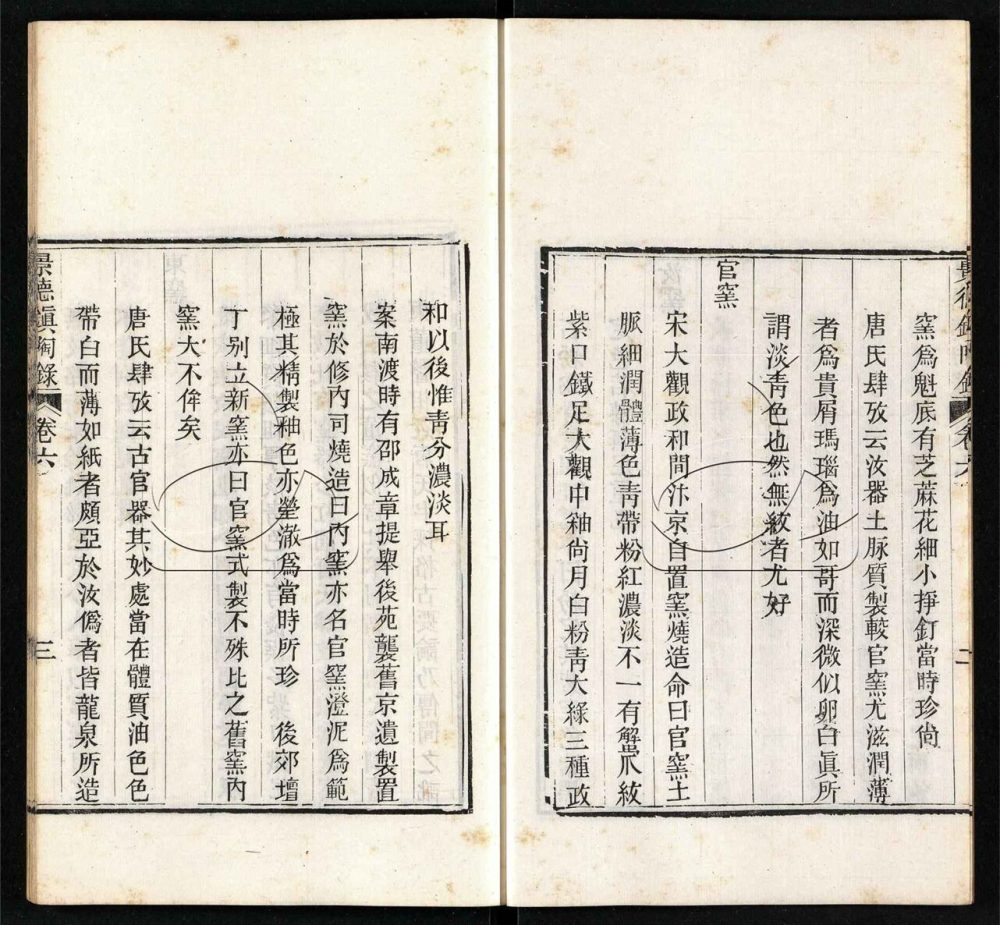 窯爲魁底有芝蔴花細小掙釘當時珍尙
唐氏肆攷云汝器土脉質製較官窯尤滋潤薄
者爲貴屑瑪瑙爲油如哥而深微似卵白眞所
謂淡靑色也然無紋者尤好
官窯
宋大觀政和間汴京自置窯燒造命曰官窯土
脈細潤體薄色靑帶粉紅濃淡不一有蟹爪紋
紫口鐵足大觀中釉尙月白粉靑大綠三種政
二
和以後惟靑分濃淡耳
案南渡時有邵成章提舉後苑襲舊京遺製置
窯於修內司燒造曰內窯亦名官窯澄泥爲範
極其精製釉色亦瑩澈爲當時所珍　後郊壇
下別立新窯亦曰官窯式製不殊比之舊窯內
窯大不侔矣
唐氏肆攷云古官器其妙處當在體質油色色
帶白而薄如紙者頗亞於汝僞者皆龍泉所造
景德鎭陶錄 卷六 三